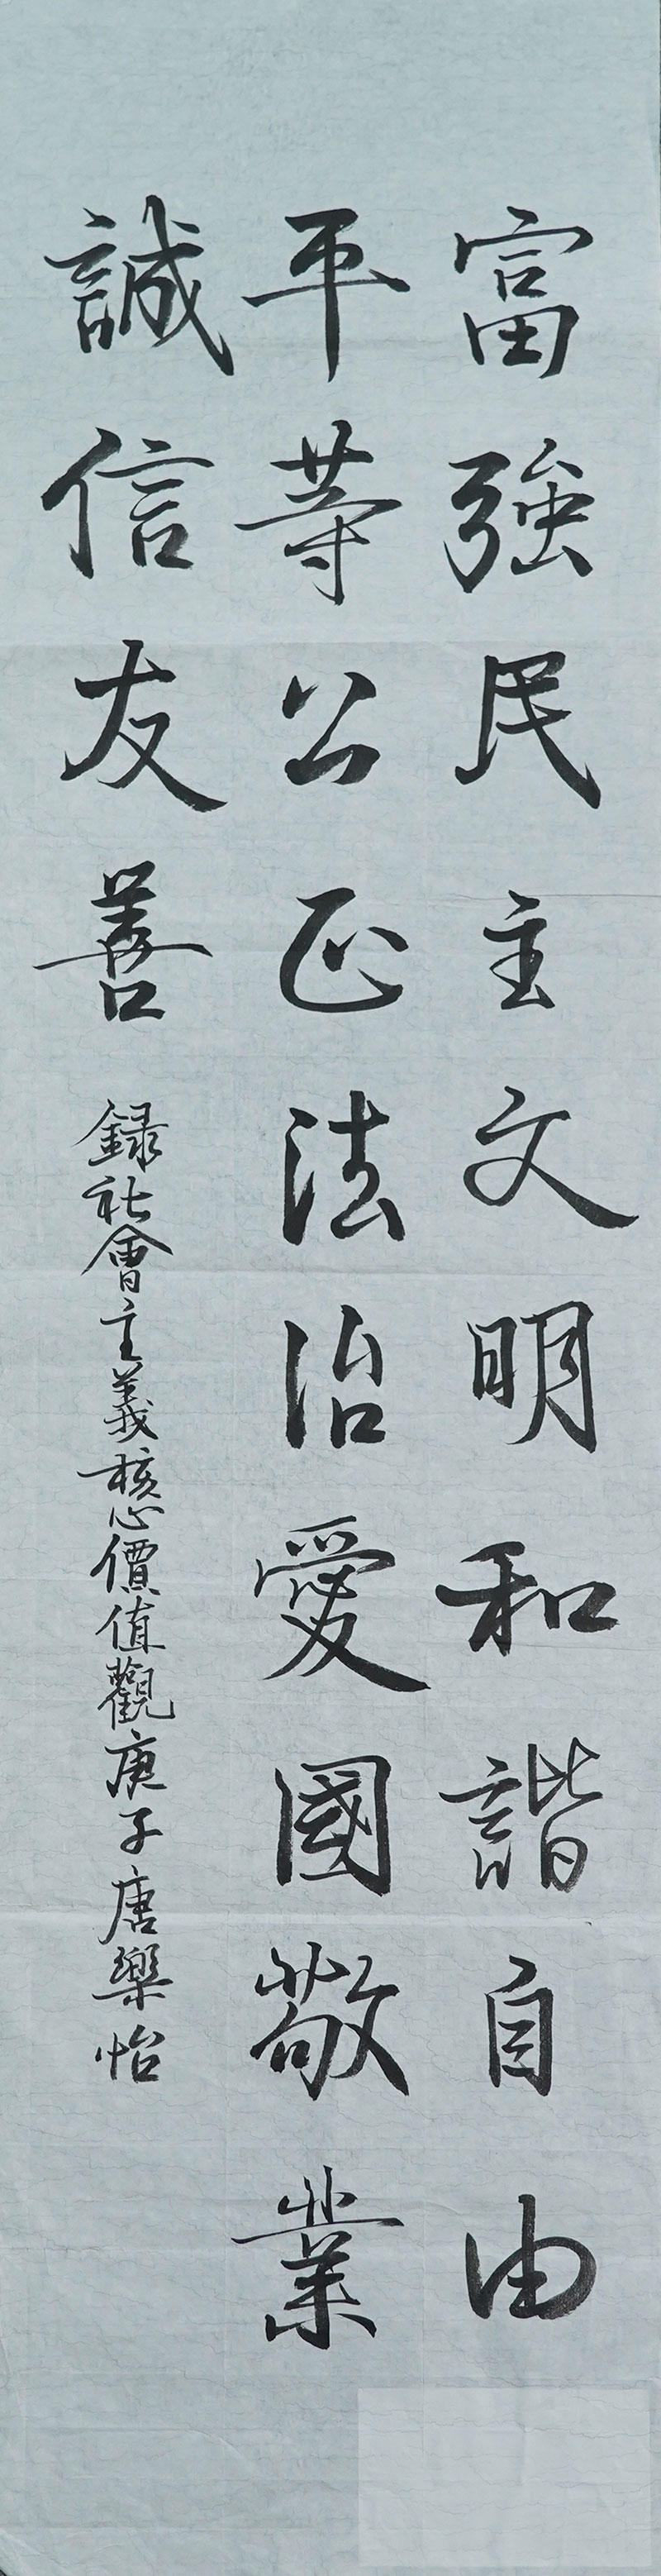 富強民主文明和諧自由
平等公正法治愛國敬業
誠信友善 録社會主義核心價值觀庚子唐樂怡